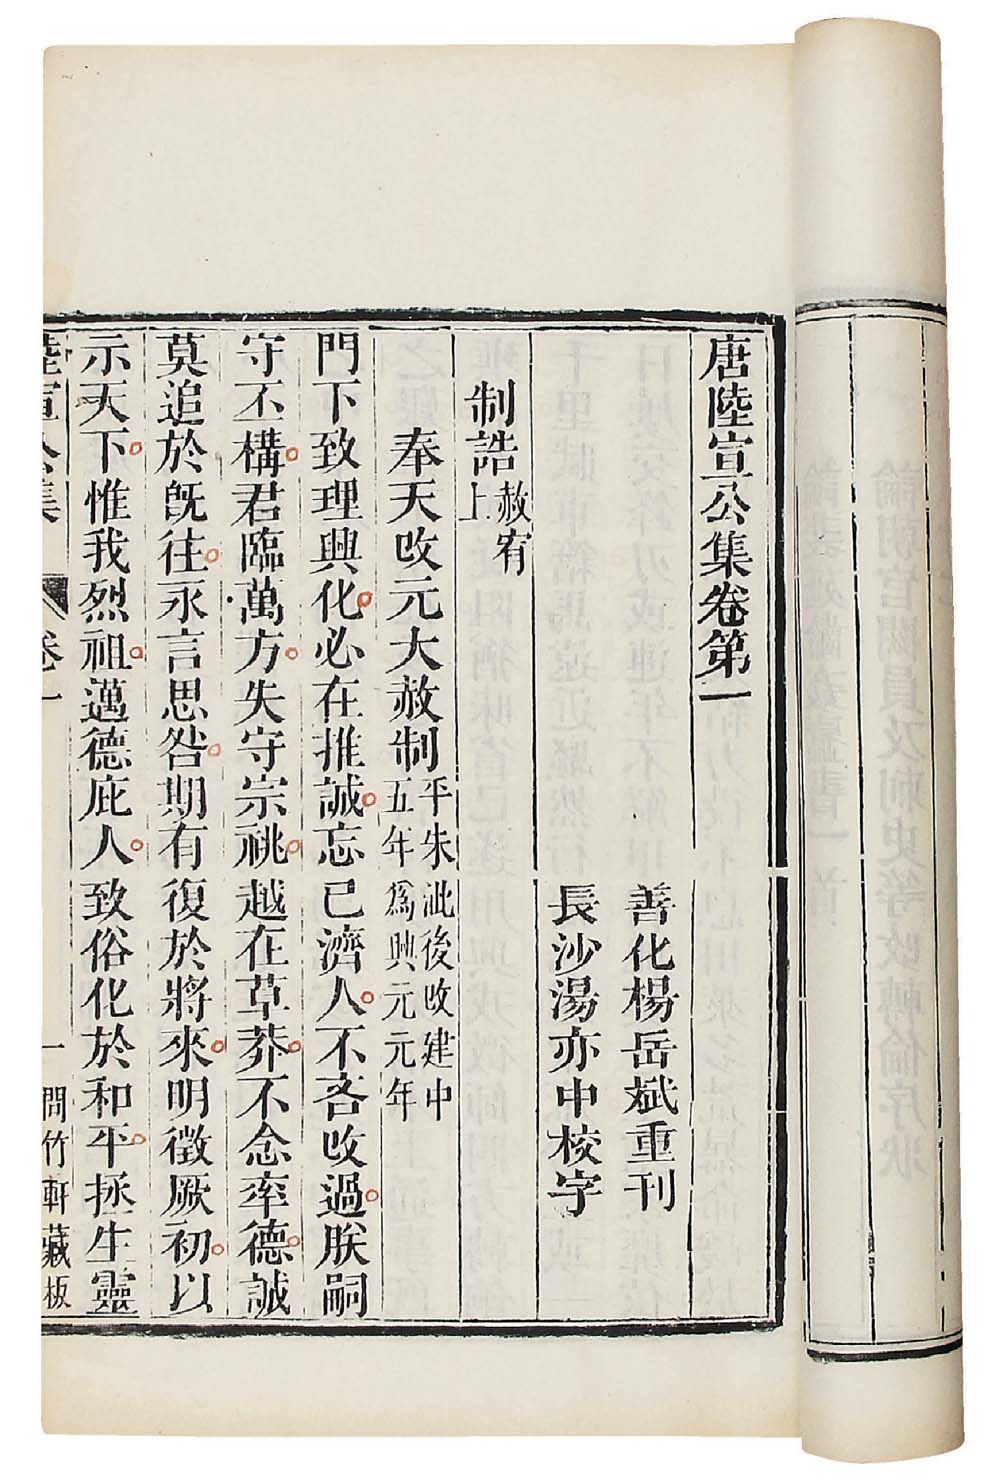 唐陸宣公集卷第一
善化楊岳斌重刊
長沙湯亦中校字
制誥赦宥上
奉天改元大赦制平朱泚後改建中五年爲興元元年
門下致理興化必在推誠忘己濟人不吝改過朕嗣
守丕構君臨萬方失守宗祧越在草莽不念率德誠
莫追於旣往永言思咎期有復於將來明徵厥初以
示天下惟我烈祖邁德庇人致俗化於和平拯生靈
陸宣公集 卷一 一 問竹軒藏板